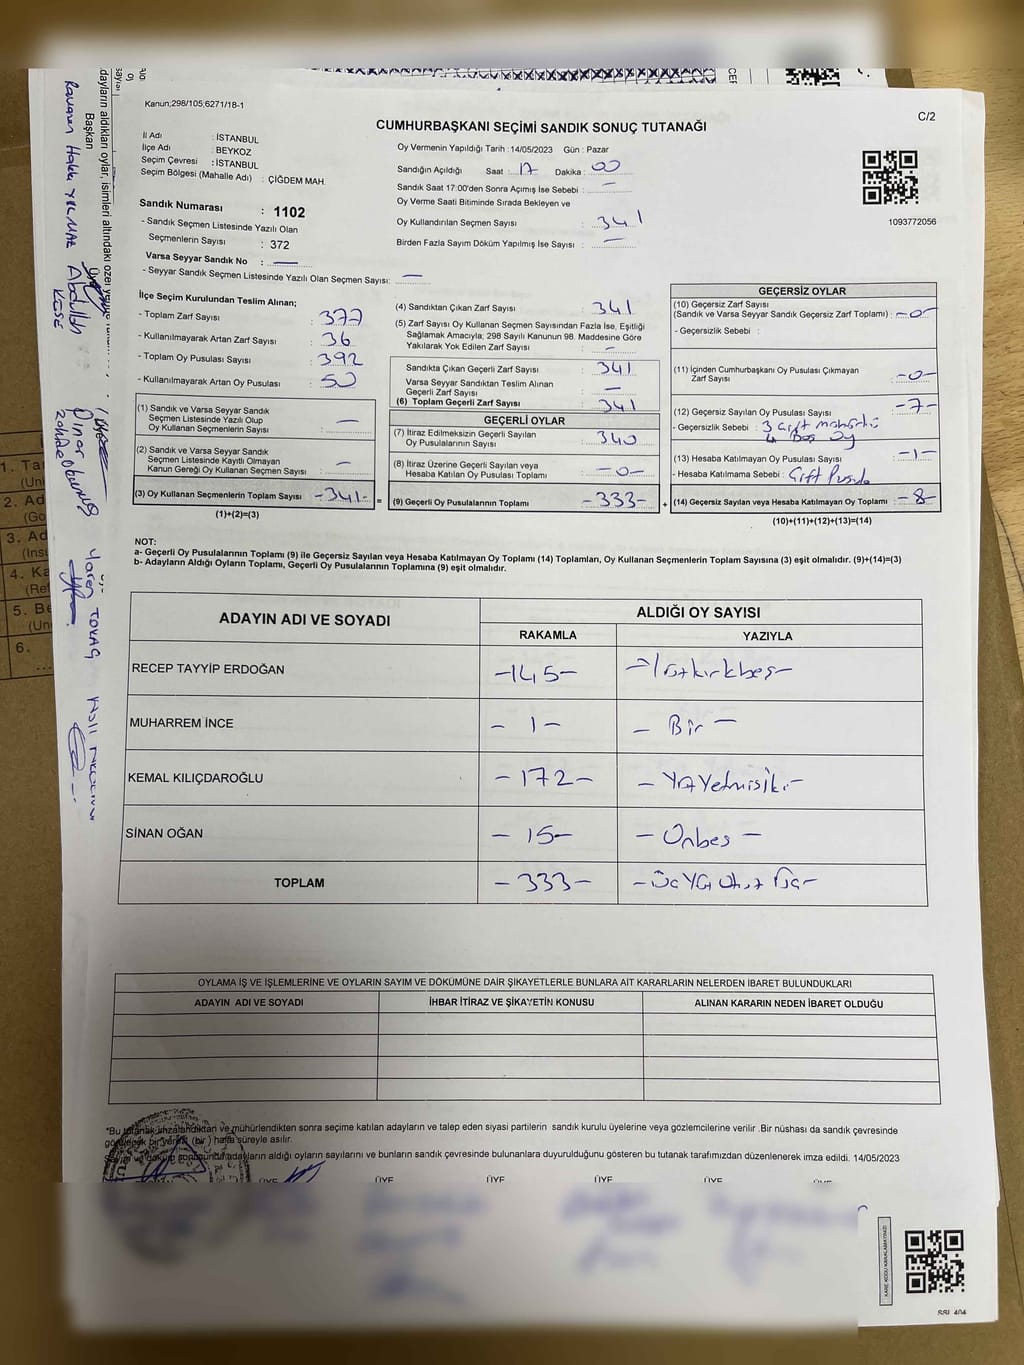 Kanun;298/105;6271/1B-1
C/2
CUMHURBAŞKANI SEÇİMİ SANDIK SONUÇ TUTANAĞI
İl Adı : İSTANBUL
İlçe Adı : BEYKOZ
Seçim Çevresi : İSTANBUL
Seçim Bölgesi (Mahalle Adı) : ÇİĞDEM MAH.
Sandık Numarası : 1102
- Sandık Seçmen Listesinde Yazılı Olan
Seçmenlerin Sayısı : 372
Varsa Seyyar Sandık No : —
- Seyyar Sandık Seçmen Listesinde Yazılı Olan Seçmen Sayısı: —
Oy Vermenin Yapıldığı Tarih :14/05/2023 Gün : Pazar
Sandığın Açıldığı Saat : 17 Dakika : 00
Sandık Saat 17:00'den Sonra Açımış İse Sebebi : —
Oy Verme Saati Bitiminde Sırada Bekleyen ve
Oy Kullandırılan Seçmen Sayısı : 341
Birden Fazla Sayım Döküm Yapılmış İse Sayısı : —
1093772056
İlçe Seçim Kurulundan Teslim Alınan;
- Toplam Zarf Sayısı : 377
- Kullanılmayarak Artan Zarf Sayısı : 36
- Toplam Oy Pusulası Sayısı : 392
- Kullanılmayarak Artan Oy Pusulası : 50
(1) Sandık ve Varsa Seyyar Sandık
Seçmen Listesinde Yazılı Olup
Oy Kullanan Seçmenlerin Sayısı : —
(2) Sandık ve Varsa Seyyar Sandık
Seçmen Listesinde Kayıtlı Olmayan
Kanun Gereği Oy Kullanan Seçmen Sayısı : —
(3) Oy Kullanan Seçmenlerin Toplam Sayısı -341- =
(1)+(2)=(3)
(4) Sandıktan Çıkan Zarf Sayısı : 341
(5) Zarf Sayısı Oy Kullanan Seçmen Sayısından Fazla İse, Eşitliği
Sağlamak Amacıyla; 298 Sayılı Kanunun 98. Maddesine Göre
Yakılarak Yok Edilen Zarf Sayısı : —
Sandıkta Çıkan Geçerli Zarf Sayısı : 341
Varsa Seyyar Sandıktan Teslim Alınan
Geçerli Zarf Sayısı : —
(6) Toplam Geçerli Zarf Sayısı : 341
GEÇERLİ OYLAR
(7) İtiraz Edilmeksizin Geçerli Sayılan
Oy Pusulasının Sayısı : 340
(8) İtiraz Üzerine Geçerli Sayılan veya
Hesaba Katılan Oy Pusulası Toplamı : -0-
(9) Geçerli Oy Pusulalarının Toplamı -333- +
GEÇERSİZ OYLAR
(10) Geçersiz Zarf Sayısı
(Sandık ve Varsa Seyyar Sandık Geçersiz Zarf Toplamı) : -0-
- Geçersizlik Sebebi :
(11) İçinden Cumhurbaşkanı Oy Pusulası Çıkmayan
Zarf Sayısı : -0-
(12) Geçersiz Sayılan Oy Pusulası Sayısı : -7-
- Geçersizlik Sebebi : 3 Çift mühürlü
4 Boş Oy
(13) Hesaba Katılmayan Oy Pusulası Sayısı : -1-
- Hesaba Katılmama Sebebi : Çift Pusula
(14) Geçersiz Sayılan veya Hesaba Katılmayan Oy Toplamı -8-
(10)+(11)+(12)+(13)=(14)
NOT:
a- Geçerli Oy Pusulalarının Toplamı (9) ile Geçersiz Sayılan veya Hesaba Katılmayan Oy Toplamı (14) Toplamları, Oy Kullanan Seçmenlerin Toplam Sayısına (3) eşit olmalıdır. (9)+(14)=(3)
b- Adayların Aldığı Oyların Toplamı, Geçerli Oy Pusulalarının Toplamına (9) eşit olmalıdır.
ADAYIN ADI VE SOYADI
ALDIĞI OY SAYISI
RAKAMLA YAZIYLA
RECEP TAYYİP ERDOĞAN -145-
MUHARREM İNCE -1- -Bir-
KEMAL KILIÇDAROĞLU -172-
SİNAN OĞAN -15- -Onbeş-
TOPLAM -333-
OYLAMA İŞ VE İŞLEMLERİNE VE OYLARIN SAYIM VE DÖKÜMÜNE DAİR ŞİKAYETLERLE BUNLARA AİT KARARLARIN NELERDEN İBARET BULUNDUKLARI
ADAYIN ADI VE SOYADI İHBAR İTİRAZ VE ŞİKAYETİN KONUSU ALINAN KARARIN NEDEN İBARET OLDUĞU
*Bu tutanak imzalandıktan ve mühürlendikten sonra seçime katılan adayların ve talep eden siyasi partilerin sandık kurulu üyelerine veya gözlemcilerine verilir .Bir nüshası da sandık çevresinde
görülecek bir yerde (bir) hafta süreyle asılır.
adayların aldığı oyların sayılarını ve bunların sandık çevresinde bulunanlara duyurulduğunu gösteren bu tutanak tarafımızdan düzenlenerek imza edildi. 14/05/2023
ÜYE ÜYE ÜYE ÜYE ÜYE ÜYE
Başkan